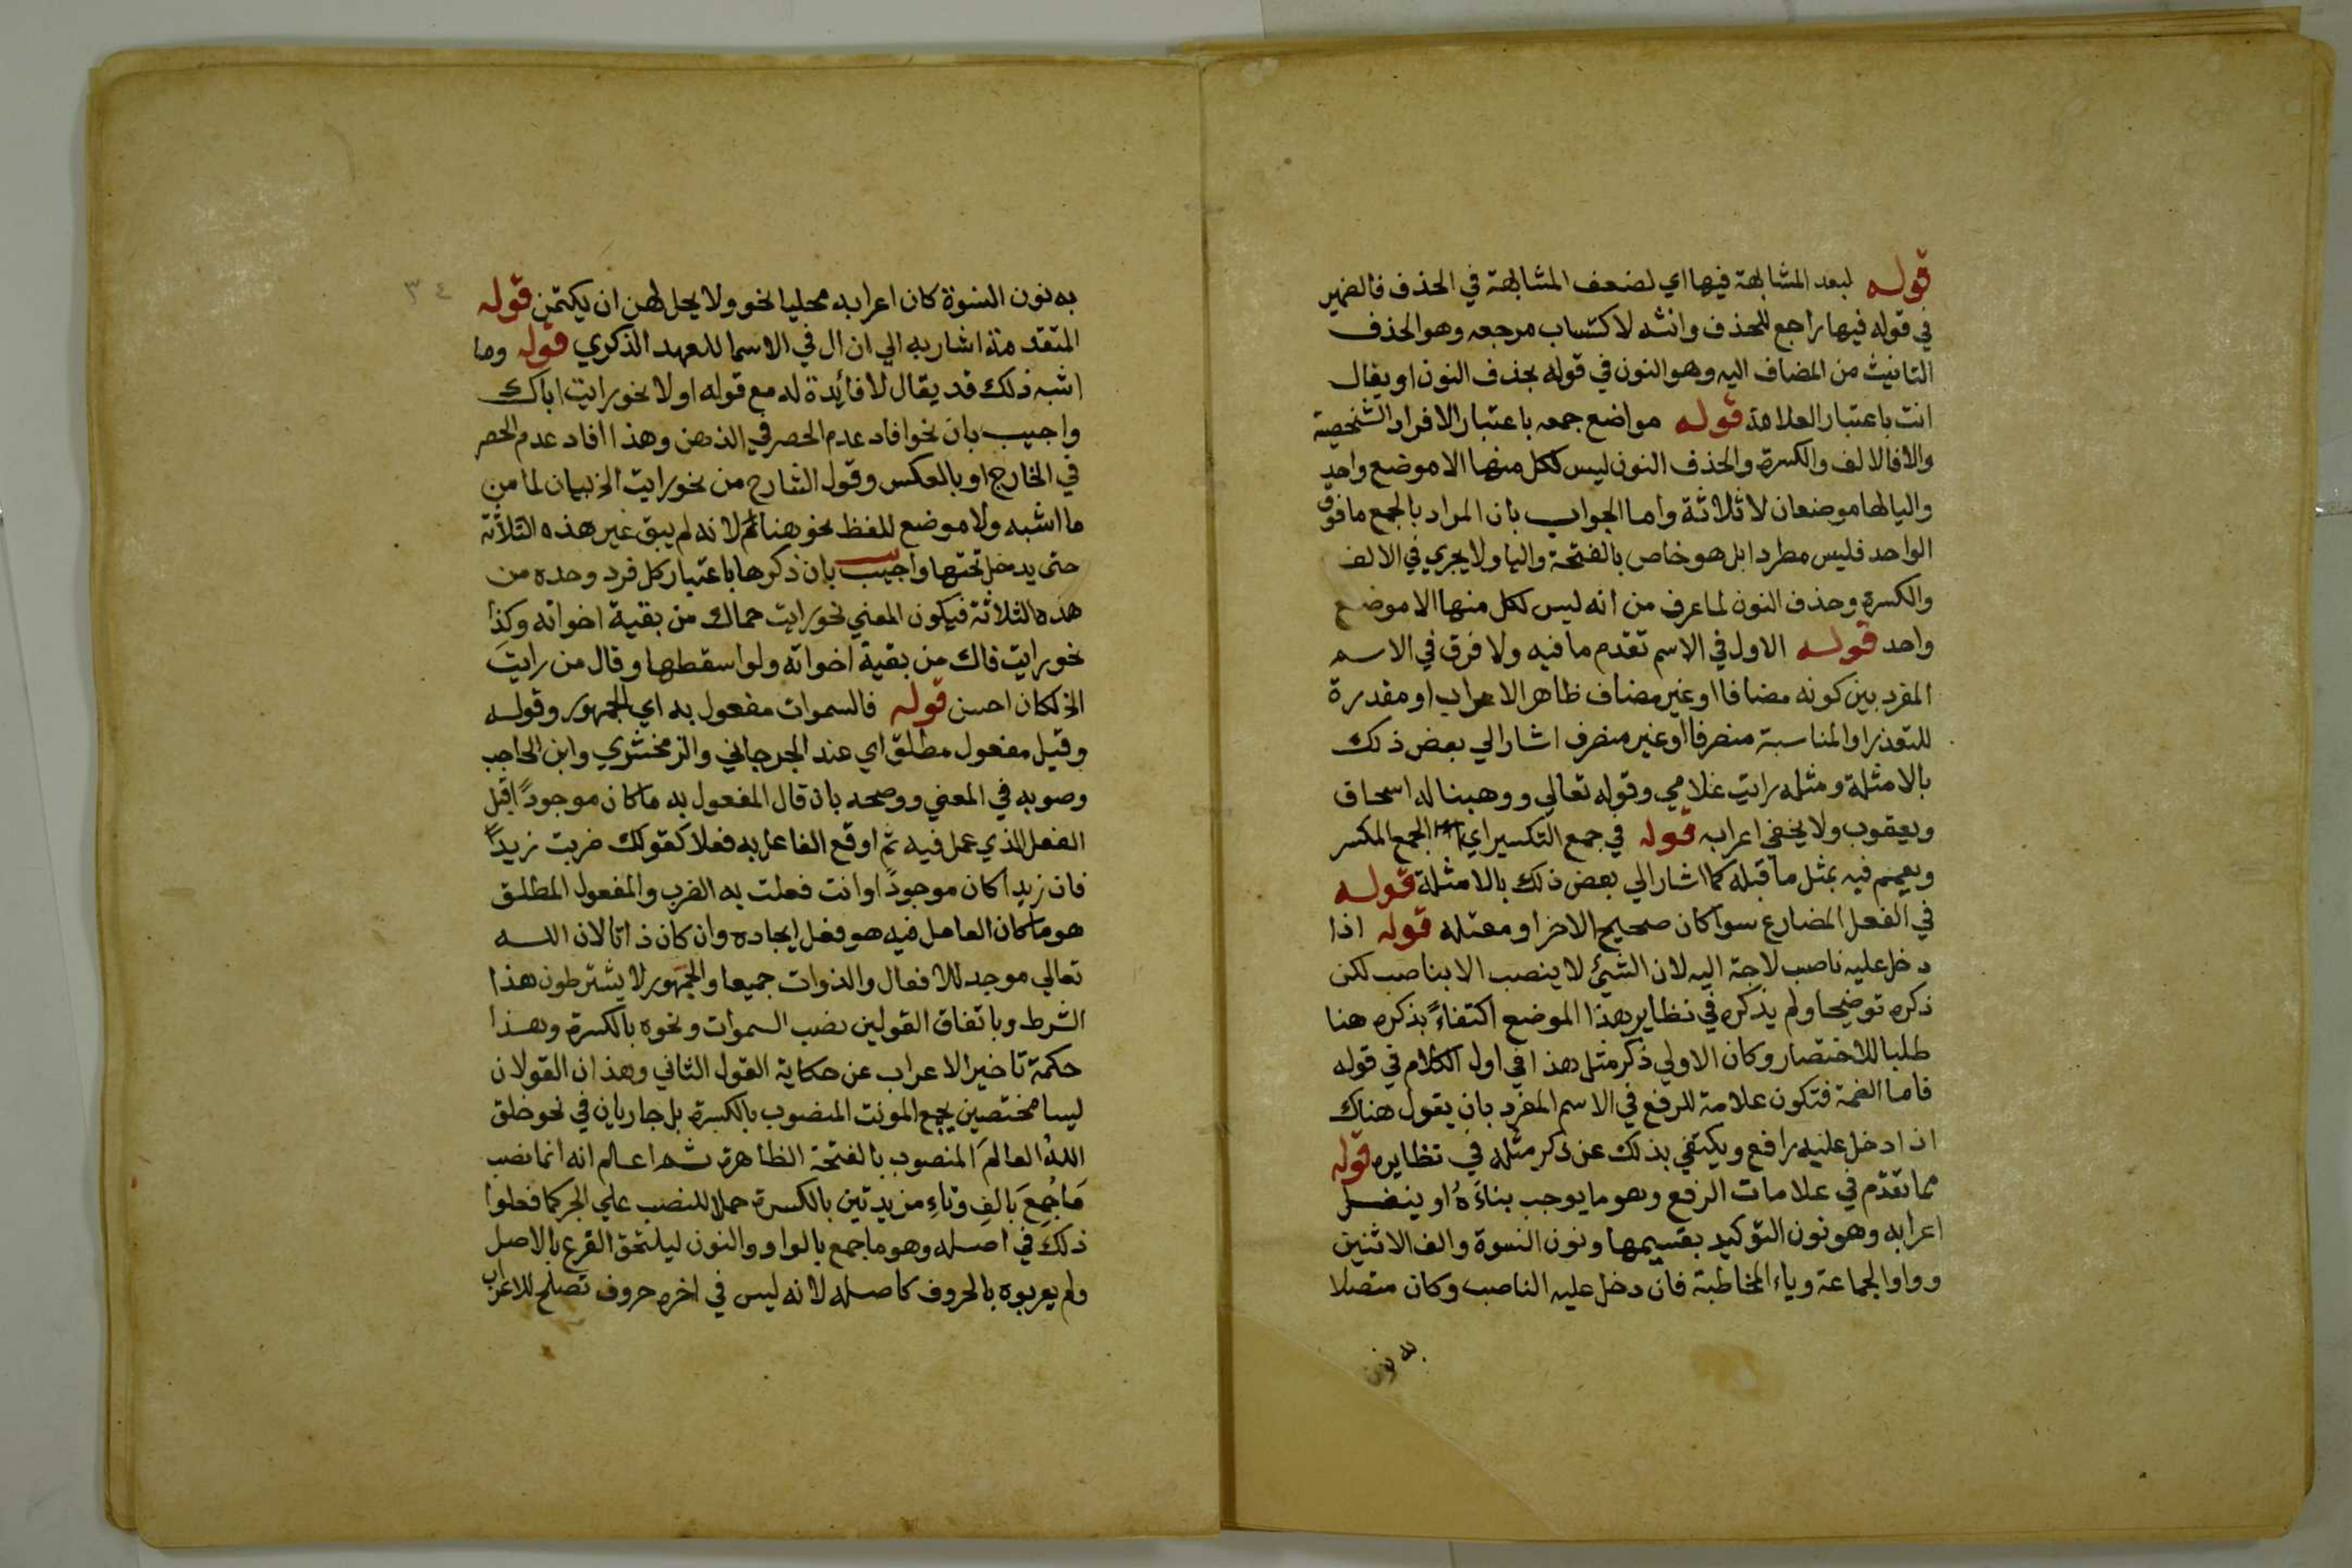 قوله لبعد المشابهة فيها اي لضعف المشابهة في الحذف فالضمير
في قوله فيها راجع للحذف وانثه لاكتساب مرجعه وهو الحذف
التانيث من المضاف اليه وهو النون في قوله بحذف النون او يقال
انث باعتبار العلامة قوله مواضع جمعه باعتبار الافراد الشخصية
والا فالالف والكسرة والحذف النون ليس لكل منها الا موضع واحد
واليا لها موضعان لا ثلاثة واما الجواب بان المراد بالجمع ما فوق
الواحد فليس مطردا بل هو خاص بالفتحة واليا ولا يجري في الالف
والكسرة وحذف النون لما عرف من انه ليس لكل منها الا موضع
واحد قوله الاول في الاسم تقدم ما فيه ولا فرق في الاسم
المفرد بين كونه مضافا او غير مضاف ظاهر الاعراب او مقدرة
للتعذر او المناسبة منصرفا او غير منصرف اشار الي بعض ذلك
بالامثلة ومثله رايت غلامي وقوله تعالي ووهبنا له اسحاق
ويعقوب ولا يخفي اعرابه قوله في جمع التكسير اي الجمع المكسر
ويعمم فيه بمثل ما قبله كما اشار الي بعض ذلك بالامثلة قوله
في الفعل المضارع سوا كان صحيح الاخر او معتله قوله اذا
دخل عليه ناصب لاجة اليه لان الشيئ لا ينصب الا بناصب لكن
ذكره توضيحا ولم يذكره في نظاير هذا الموضع اكتفاءً بذكره هنا
طلبا للاختصار وكان الاولي ذكر مثل هذا في اول الكلام في قوله
فاما الضمة فتكون علامة للرفع في الاسم المفرد بان يقول هناك
اذا دخل عليه رافع ويكتفي بذلك عن ذكر مثله في نظايره قوله
مما تقدم في علامات الرفع وهو ما يوجب بناءَهُ او ينقل
اعرابه وهو نون التوكيد بقسيمها ونون النسوة والف الاثنين
وواو الجماعة وياء المخاطبة فان دخل عليه الناصب وكان متصلا
به نون
٣٤
به نون النسوة كان اعرابه محليا نحو ولا يحل لهن ان يكتمن قوله
المتقدمة اشار به الي ان ال في الاسما للعهد الذكري قوله وما
اشبه ذلك قد يقال لا فائدة له مع قوله اولا نحو رايت اباك
واجيب بان نحو افاد عدم الحصر في الذهن وهذا افاد عدم الحصر
في الخارج او بالعكس وقول الشارح من نحو رايت الخ بيان لما من
ما اشبه ولا موضع للفظ نحو هنا لانه لم يبق غير هذه الثلاثة
حتى يدخل تحتها واجيب بان ذكرها باعتبار كل فرد وحده من
هذه الثلاثة فيكون المعني نحو رايت حماك من بقية اخواته وكذا
نحو رايت فاك من بقية اخواته ولو اسقطها وقال من رايت
الخ لكان احسن قوله فالسموات مفعول به اي الجمهور وقوله
وقيل مفعول مطلق اي عند الجرجاني والزمخشري وابن الحاجب
وصوبه في المعني ووضحه بان قال المفعول به ما كان موجوداً قبل
الفعل الذي عمل فيه ثم اوقع الفاعل به فعلا كقولك ضربت زيداً
فان زيدا كان موجوداً وانت فعلت به الضرب والمفعول المطلق
هو ما كان العامل فيه هو فعل ايجاده وان كان ذاتا لان الله
تعالي موجد للافعال والذوات جميعا والجمهور لا يشترطون هذا
الشرط وباتفاق القولين نصب السموات ونحوه بالكسرة وهذا
حكمة تاخير الاعراب عن حكاية القول الثاني وهذان القولان
ليسا مختصين بجمع المونث المنصوب بالكسرة بل جاريان في نحو خلق
اللهُ العالمَ المنصوب بالفتحة الظاهرة ثم اعلم انه انما نصب
مَا جُمِعَ بَالفٍ وتاءٍ مزيدتين بالكسرة حملا للنصب علي الجر كما فعلوا
ذلك في اصله وهو ما جمع بالواو والنون ليلتحق الفرع بالاصل
ولم يعربوه بالحروف كاصله لانه ليس في اخره حروف تصلح للاعراب